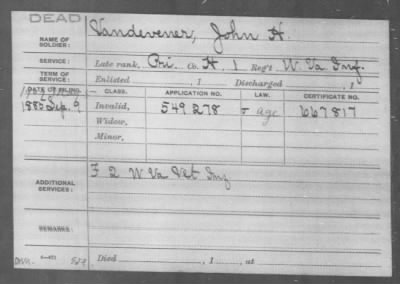 DEAD
NAME OF SOLDIER: Vandevener, John H.
SERVICE: Late rank, Pri. Co. H, 1 Reg't W. Va Inf.
TERM OF SERVICE: Enlisted , 1 Discharged , 1
DATE OF FILING. CLASS. APPLICATION NO. LAW. CERTIFICATE NO.
1885 Sep. 9 Invalid, 549278 age 667817
Widow,
Minor,
ADDITIONAL SERVICES: F 2 W Va Vet Inf
REMARKS:
Died , 1 , at